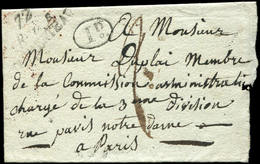 72
1P.
A Monsieur
Monsieur Duplai Membre
de la Commission administrative
chargé de la 3eme Division
rue parvis notre Dame
a Paris